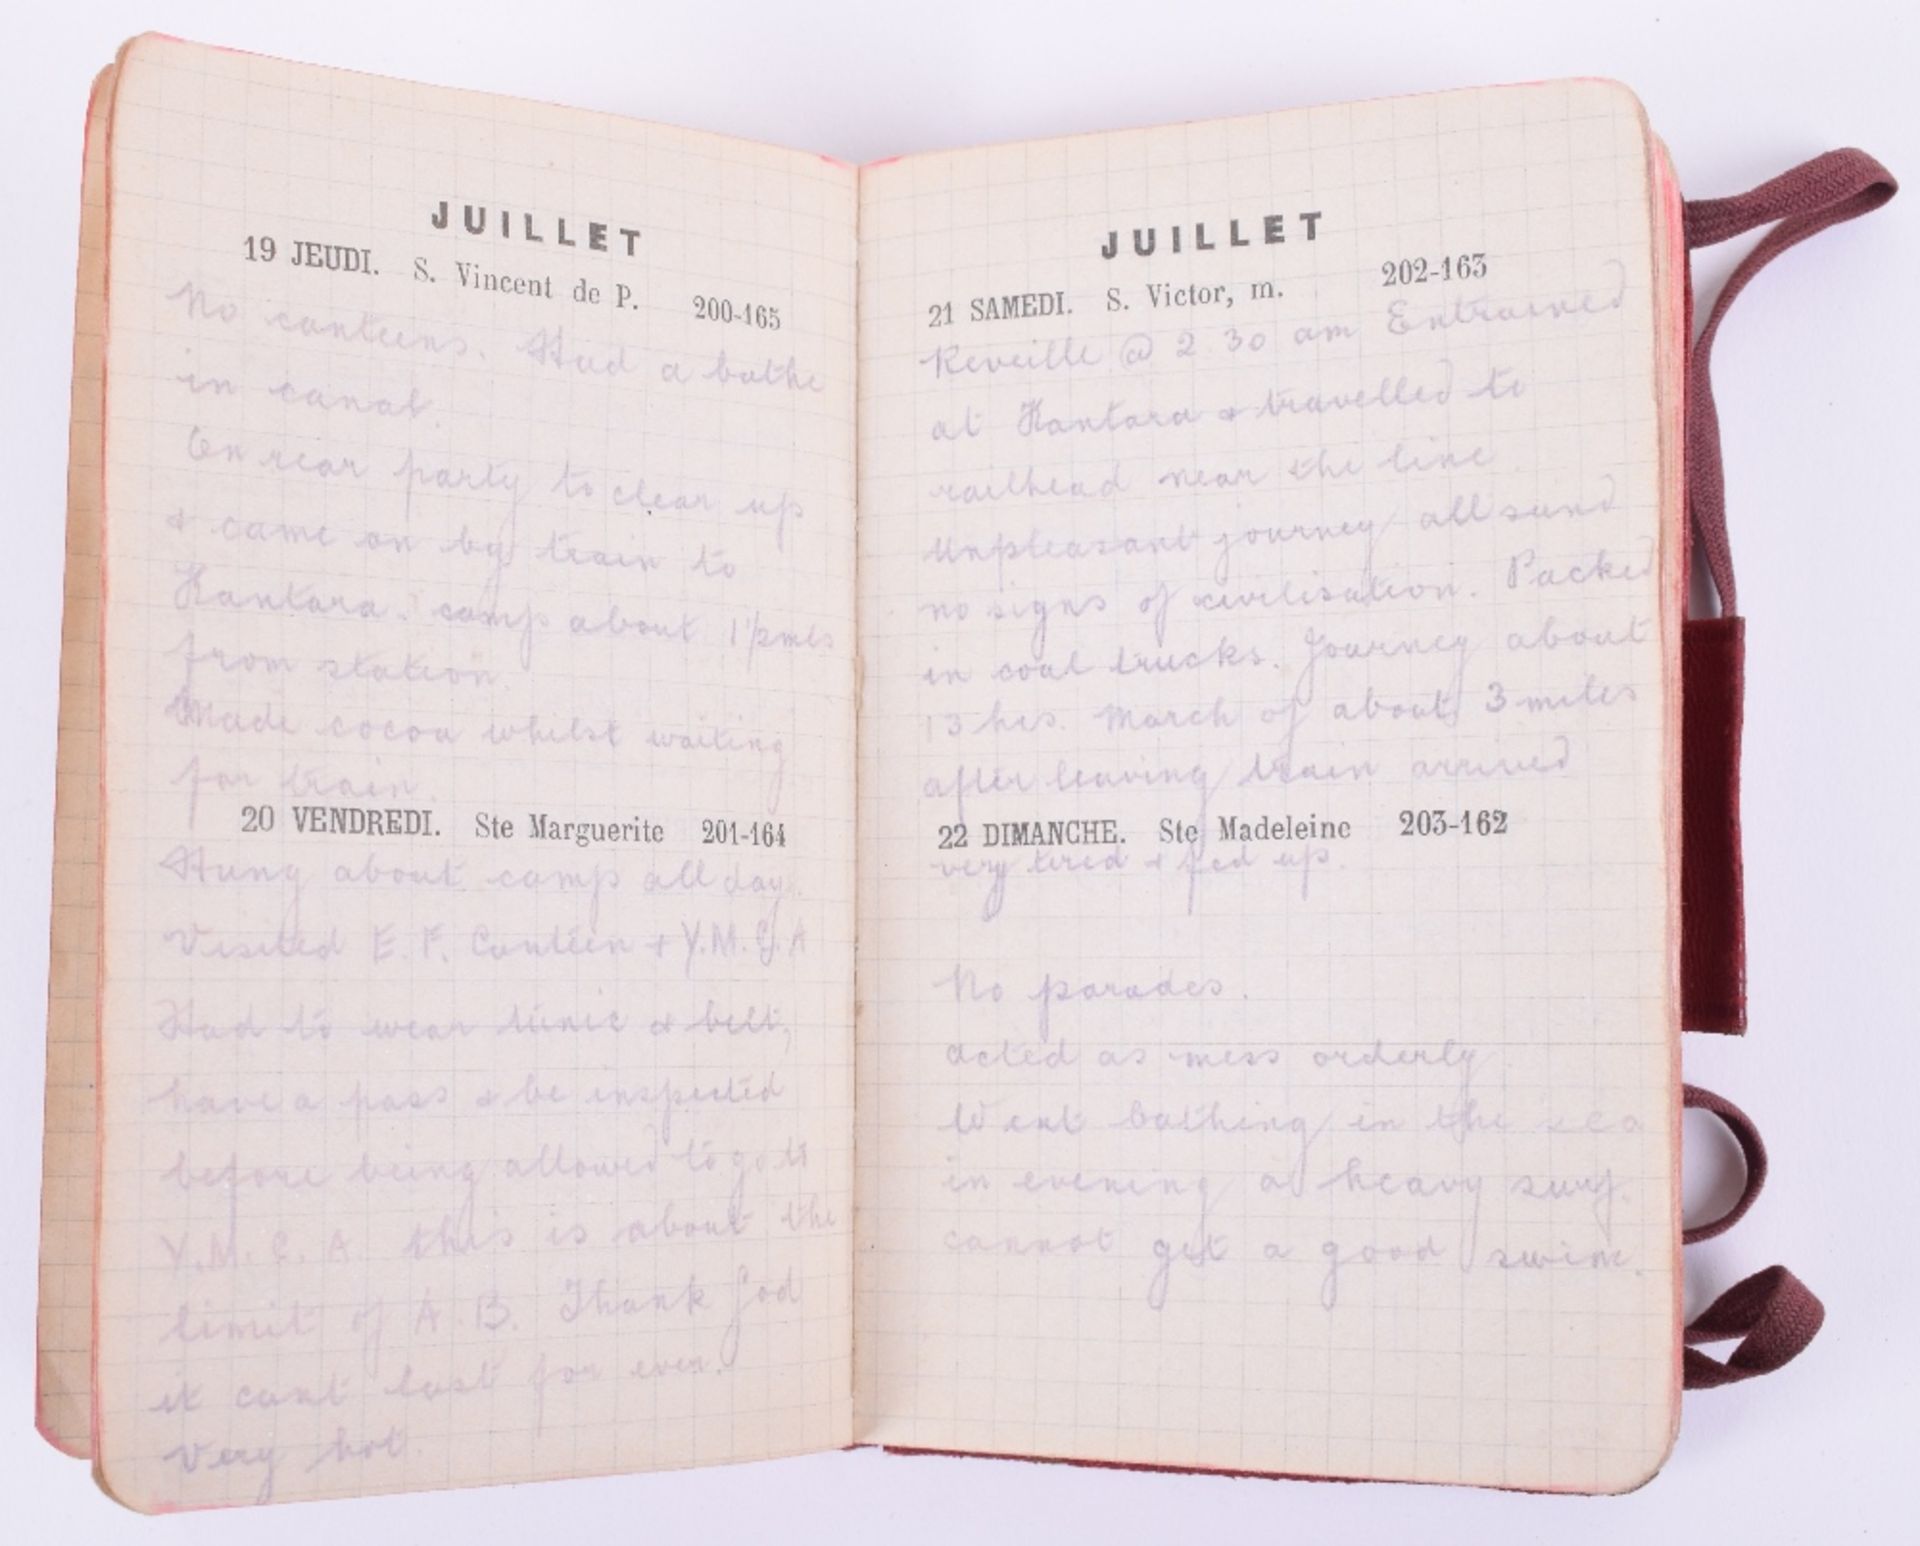 JUILLET
19 JEUDI. S. Vincent de P. 200-165
No canteens. Had a bathe
in canal.
On rear party to clear up
& came on by train to
Kantara. camp about 1½ mls
from station.
Made cocoa whilst waiting
for train.
20 VENDREDI. Ste Marguerite 201-164
Hung about camp all day.
Visited E. F. Canteen + Y.M.C.A
Had to wear tunic & belt,
have a pass & be inspected
before being allowed to go to
Y.M.C.A. this is about the
limit of A.B. Thank God
it cant last for ever.
Very hot.
JUILLET
21 SAMEDI. S. Victor, m. 202-163
Reveille @ 2 30 am Entrained
at Kantara & travelled to
railhead near the line
Unpleasant journey all sand
no signs of civilisation. Packed
in coal trucks. Journey about
13 hrs. March of about 3 miles
after leaving train arrived
22 DIMANCHE. Ste Madeleine 203-162
very tired & fed up.
No parades.
acted as mess orderly
Went bathing in the sea
in evening a heavy surf.
cannot get a good swim.